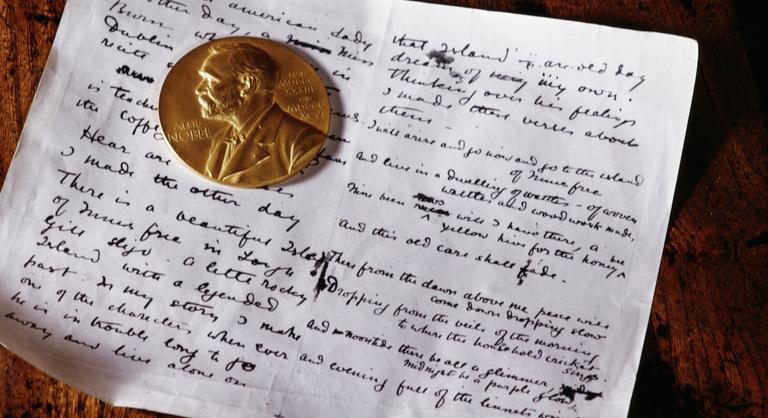 other day. american lady
Dublin
recite in
is teac
the coff
Hear are
I made the other day
There is a beautiful Isla
of Innis free in Lough
Gill Sligo. A little rocky
Island with a legended
past. In my story I make
one of the characters when ever
he is in trouble long to go
away and live alone on
ALFR
NOBEL
NAT
MDCCC
XXXIII
OB
MDCCC
XCVI
that Island – an old day
dream of my own.
Thinking over his feelings
I made these verses about
them –
I will arise and go now and go to the island
of Innis free
and live in a dwelling of wattles – of woven
wattles and wood work made,
Nine bean rows will I have there, a
yellow hive for the honey
And this old care shall fade.
There from the dawn above me peace will
come down dropping slow
Dropping from the veils of the morning
to where the household cricket
sings.
And noontide there be all a glimmer,
midnight be a purple glow
and evening full of the linnets